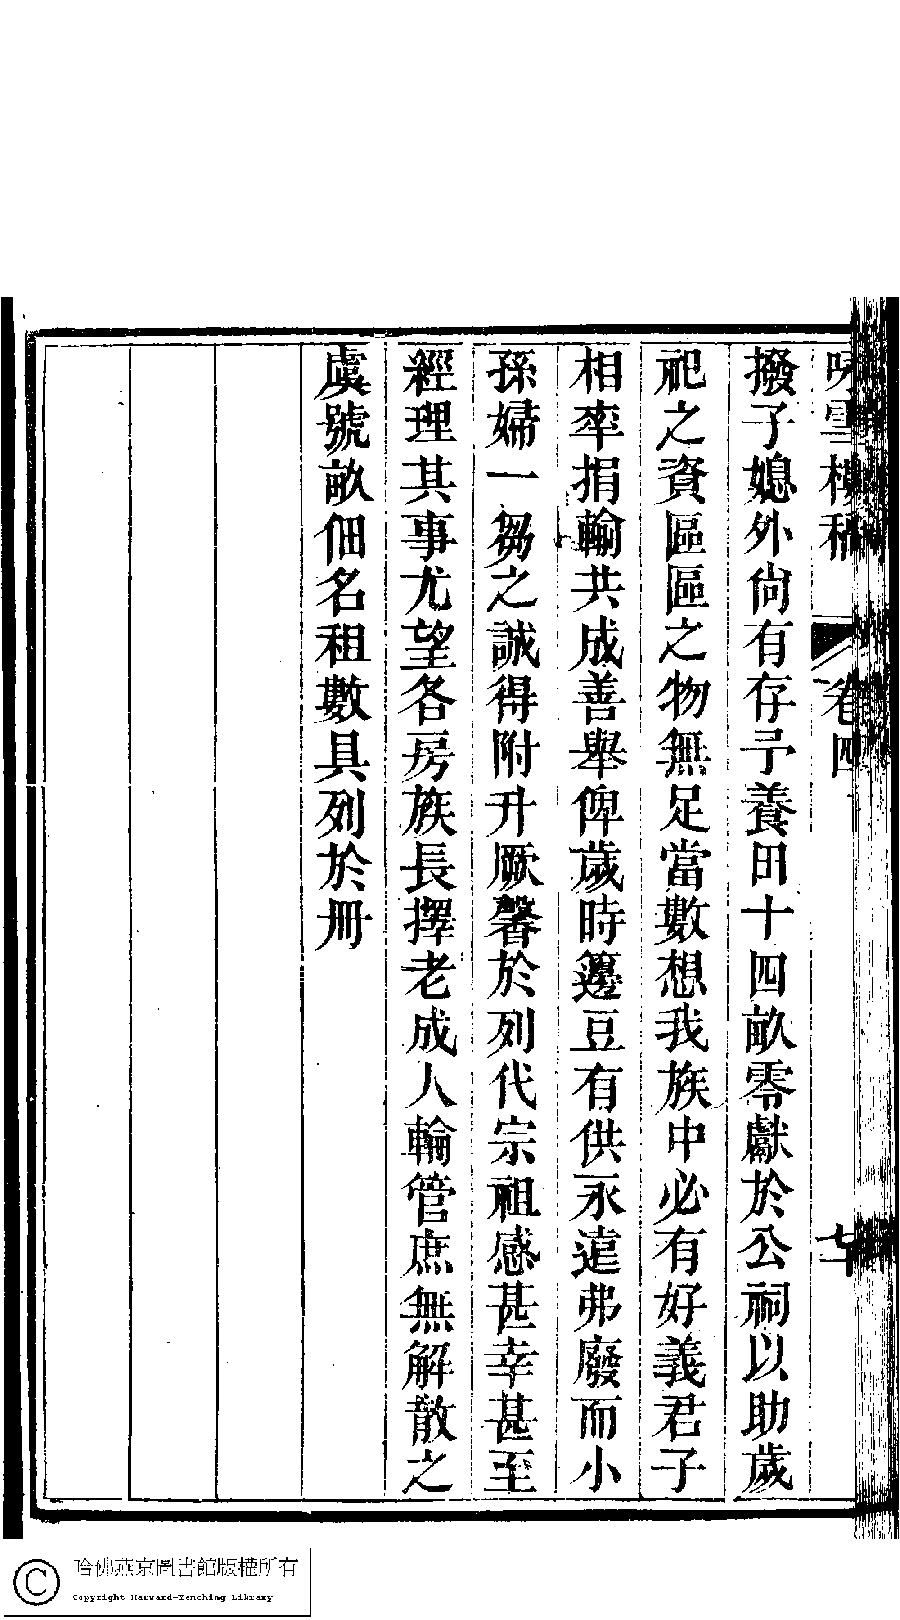 咏雪樓稿 卷四 七
撥子媳外尙有存予養田十四畝零獻於公祠以助歲
祀之資區區之物無足當數想我族中必有好義君子
相率捐輸共成善舉俾歲時籩豆有供永遠弗廢而小
孫婦一芻之誠得附升厥馨於列代宗祖感甚幸甚至
經理其事尤望各房族長擇老成人輪管庶無解散之
虞號畝佃名租數具列於冊
哈佛燕京圖書館版權所有
Copyright Harvard-Yenching Library